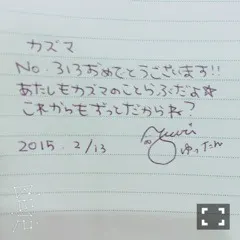 カズマ
No. 313おめでとうございます!!
あたしもカズマのことらぶだよ☆
これからもずっとだからね?
2015. 2/13
ゆったん